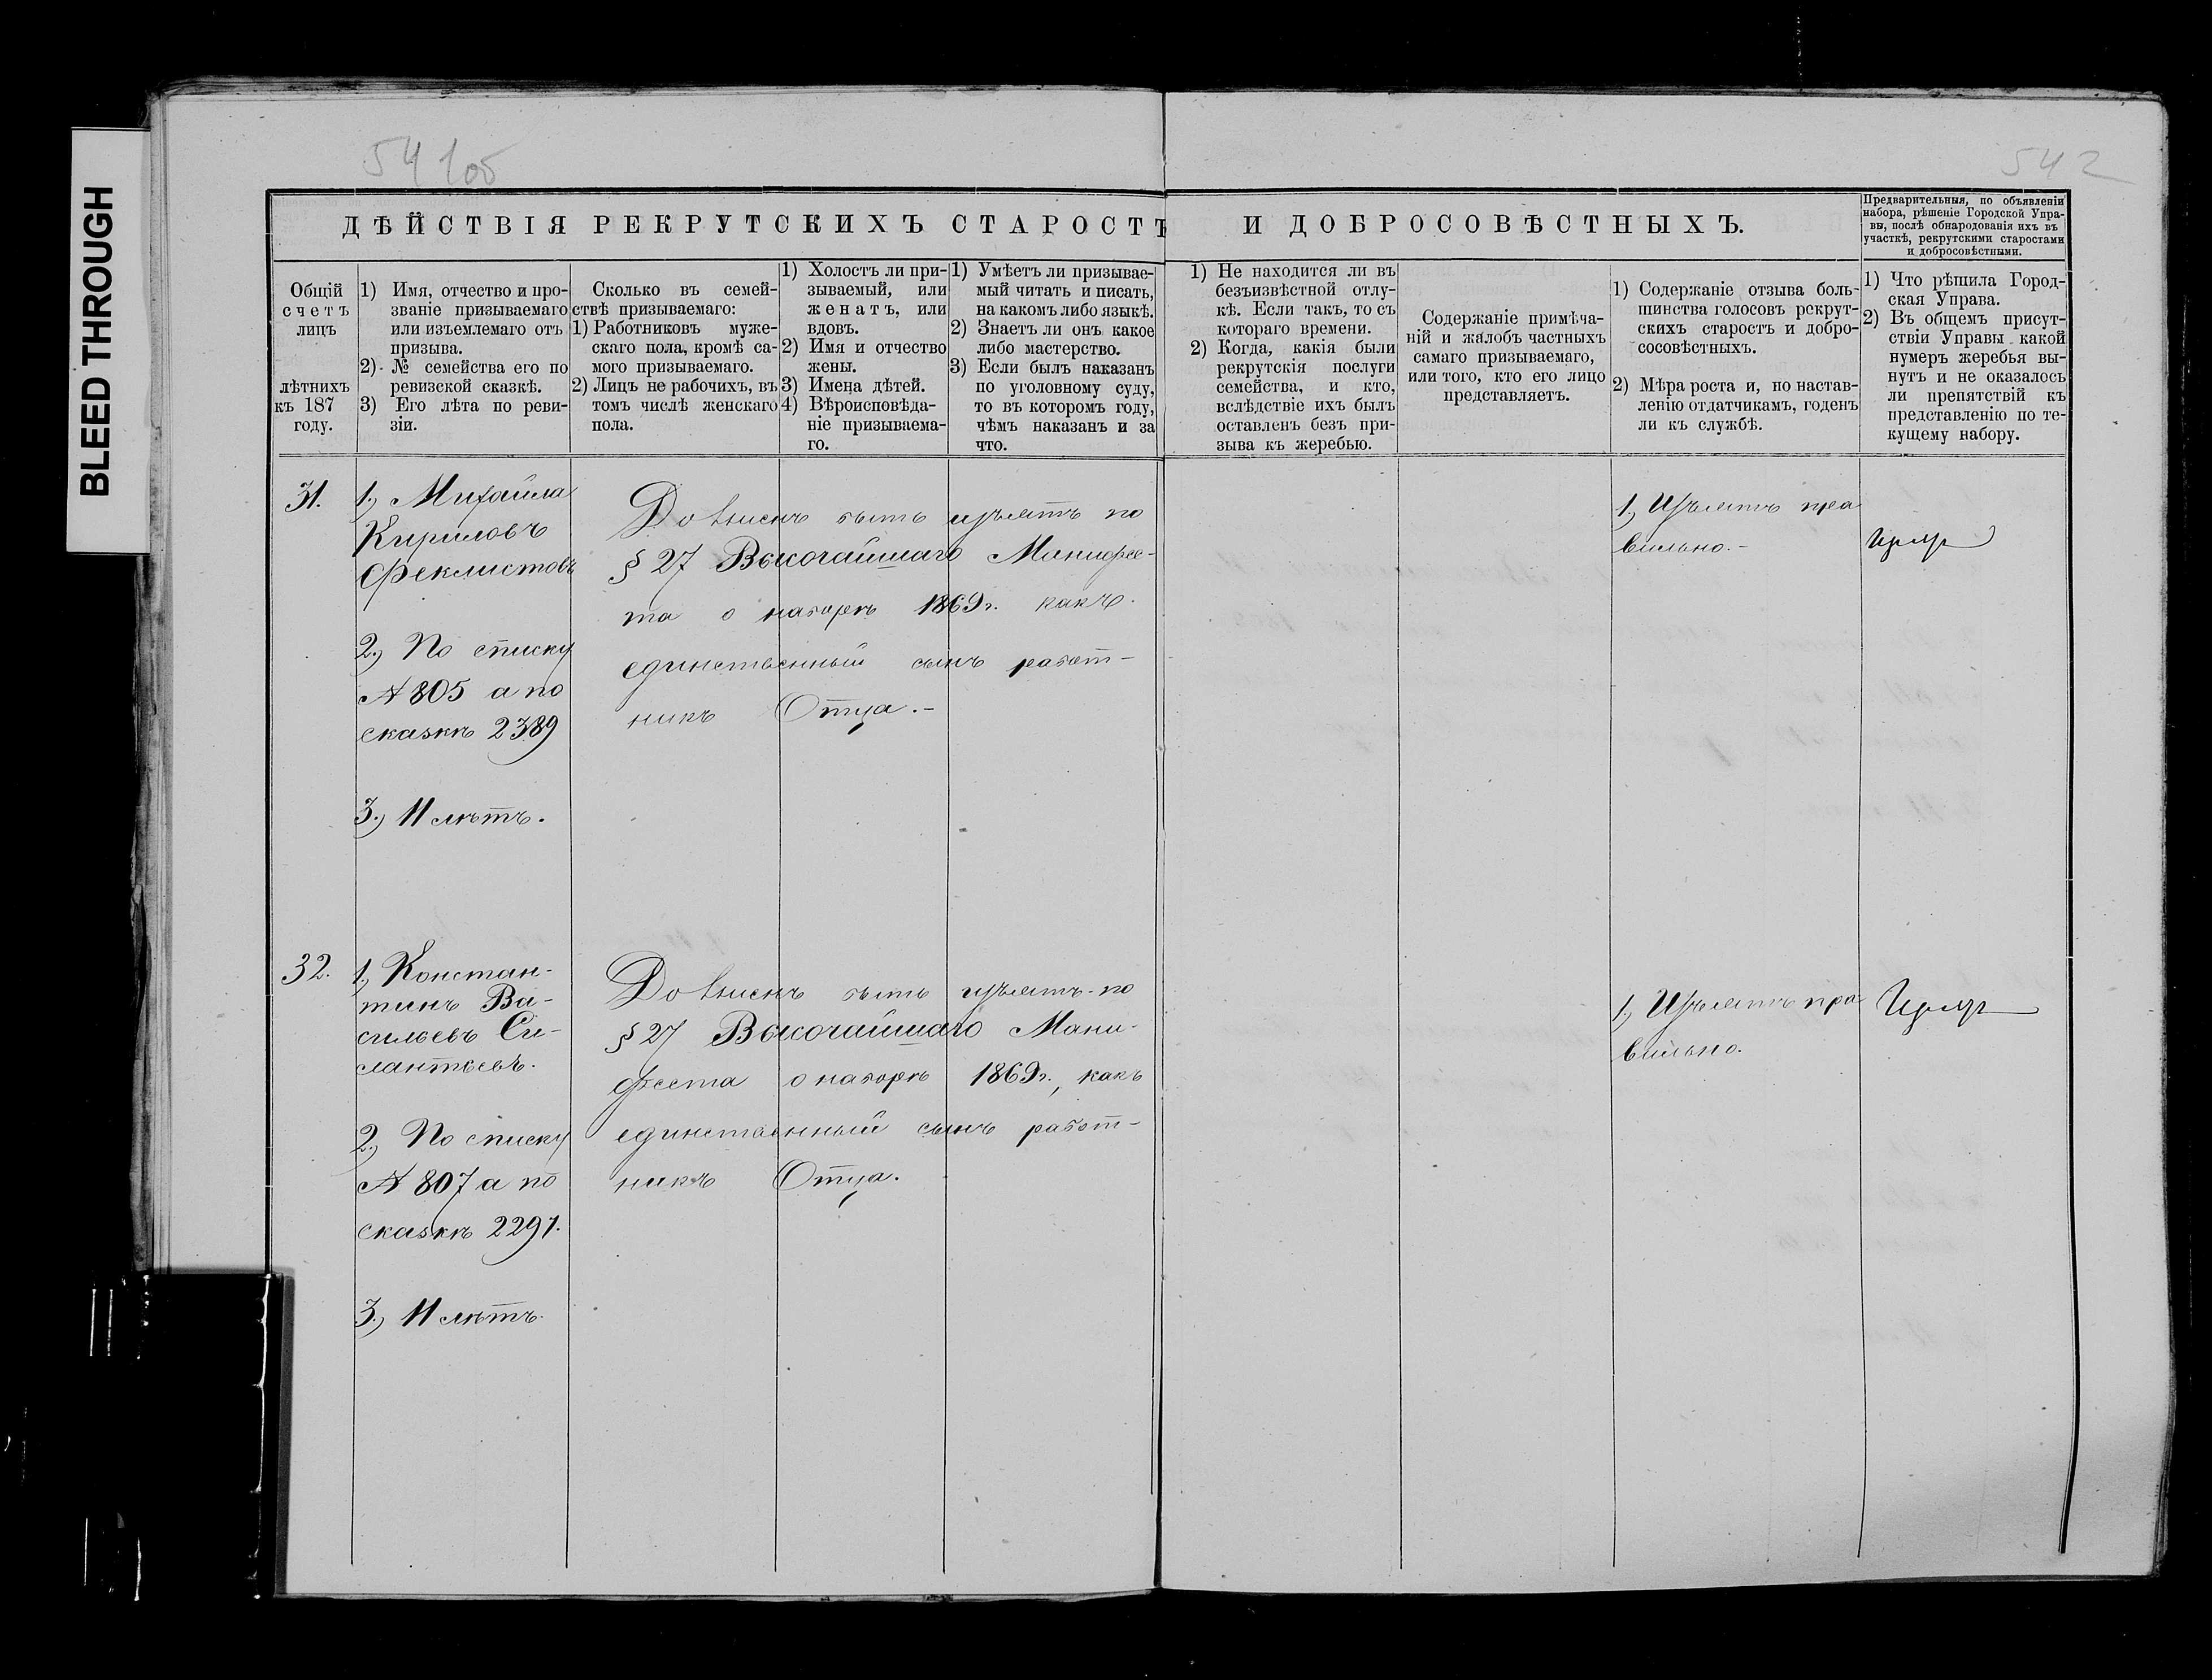 BLEED THROUGH
541об
542
ДѢЙСТВІЯ РЕКРУТСКИХЪ СТАРОСТЪ И ДОБРОСОВѢСТНЫХЪ.
Предварительныя, по объявленіи
набора, рѣшеніе Городской Упра-
вы, послѣ обнародованія ихъ въ
участкѣ, рекрутскими старостами
и добросовѣстными.
Общій
счетъ
лицъ
лѣтнихъ
къ 187
году.
1) Имя, отчество и про-
званіе призываемаго
или изъемлемаго отъ
призыва.
2) № семейства его по
ревизской сказкѣ.
3) Его лѣта по реви-
зіи.
Сколько въ семей-
ствѣ призываемаго:
1) Работниковъ муже-
скаго пола, кромѣ са-
мого призываемаго.
2) Лицъ не рабочихъ, въ
томъ числѣ женскаго
пола.
1) Холостъ ли при-
зываемый, или
женатъ, или
вдовъ.
2) Имя и отчество
жены.
3) Имена дѣтей.
4) Вѣроисповѣда-
ніе призываема-
го.
1) Умѣетъ ли призывае-
мый читать и писать,
на какомъ либо языкѣ.
2) Знаетъ ли онъ какое
либо мастерство.
3) Если былъ наказанъ
по уголовному суду,
то въ которомъ году,
чѣмъ наказанъ и за
что.
1) Не находится ли въ
безъизвѣстной отлу-
кѣ. Если такъ, то съ
котораго времени.
2) Когда, какія были
рекрутскія послуги
семейства, и кто,
вслѣдствіе ихъ былъ
оставленъ безъ при-
зыва къ жеребью.
Содержаніе примѣча-
ній и жалобъ частныхъ
самаго призываемаго,
или того, кто его лицо
представляетъ.
1) Содержаніе отзыва боль-
шинства голосовъ рекрут-
скихъ старостъ и добро-
сосовѣстныхъ.
2) Мѣра роста и, по настав-
ленію отдатчикамъ, годенъ
ли къ службѣ.
1) Что рѣшила Город-
ская Управа.
2) Въ общемъ присут-
ствіи Управы какой
нумеръ жеребья вы-
нутъ и не оказалось
ли препятствій къ
представленію по те-
кущему набору.
31.
1., Михайла
Кириловъ
Феклистовъ
2., По списку
№ 805 а по
сказкѣ 2389
3., 11 лѣтъ.
Долженъ быть изъятъ по
§ 27 Высочайшаго Манифес-
та о наборѣ 1869 г. какъ
единственный сынъ работ-
никъ Отца.-
1., Изъятъ пра
вильно.-
32.
1., Констан-
тинъ Ва-
сильевъ Си-
лантьевъ.
2., По списку
№ 807 а по
сказкѣ 2291.
3., 11 лѣтъ.
Долженъ быть изъятъ по
§ 27 Высочайшаго Мани-
феста о наборѣ 1869 г., какъ
единственный сынъ работ-
никъ Отца.
1., Изъятъ пра
вильно.